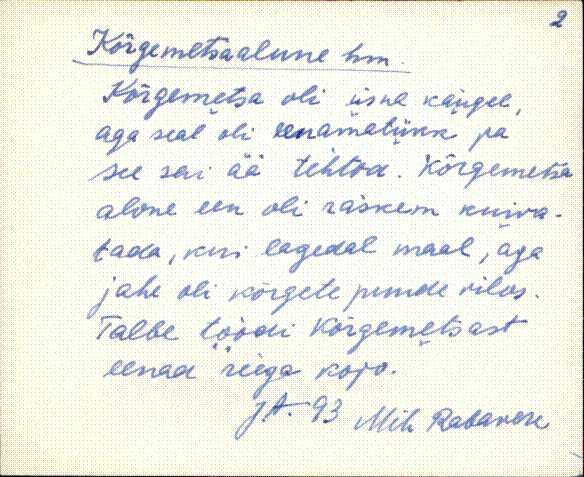 2
Kõrgemetsaalune hm.
Kõrgemetsa oli üsna kaugel,
aga seal oli eenamatükk ja
see sai ää tehtod. Kõrgemetsa
alone een oli räskem kuiva-
tada, kui lagedal maal, aga
jahe oli kõrgete puude vilus.
Talbe töödi Kõrgemetsast
eenad reega kojo.
J.A. 93 Mih Rabavere